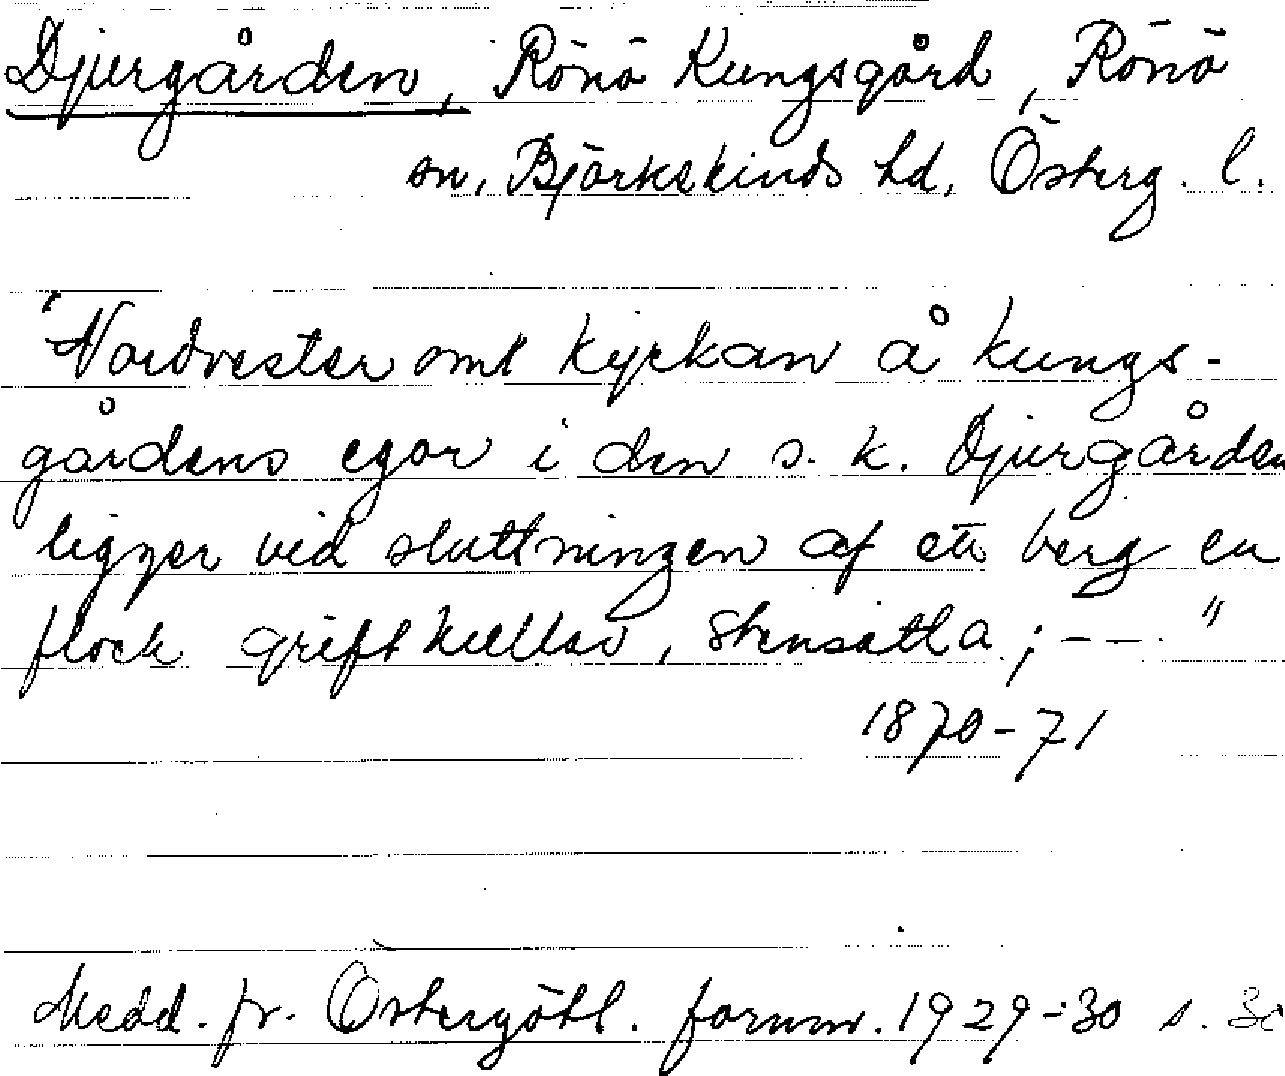 Djurgården, Rönö Kungsgård, Rönö
sn, Björkekinds hd, Österg. l.
"Nordvester omk kyrkan å kungs-
gårdens egor i den s. k. Djurgården
ligger vid sluttningen af ett berg en
flock griftkullar, stensatta; - - - "
1870-71
Medd. fr. Östergötl. fornm. 1929-30 s. 30